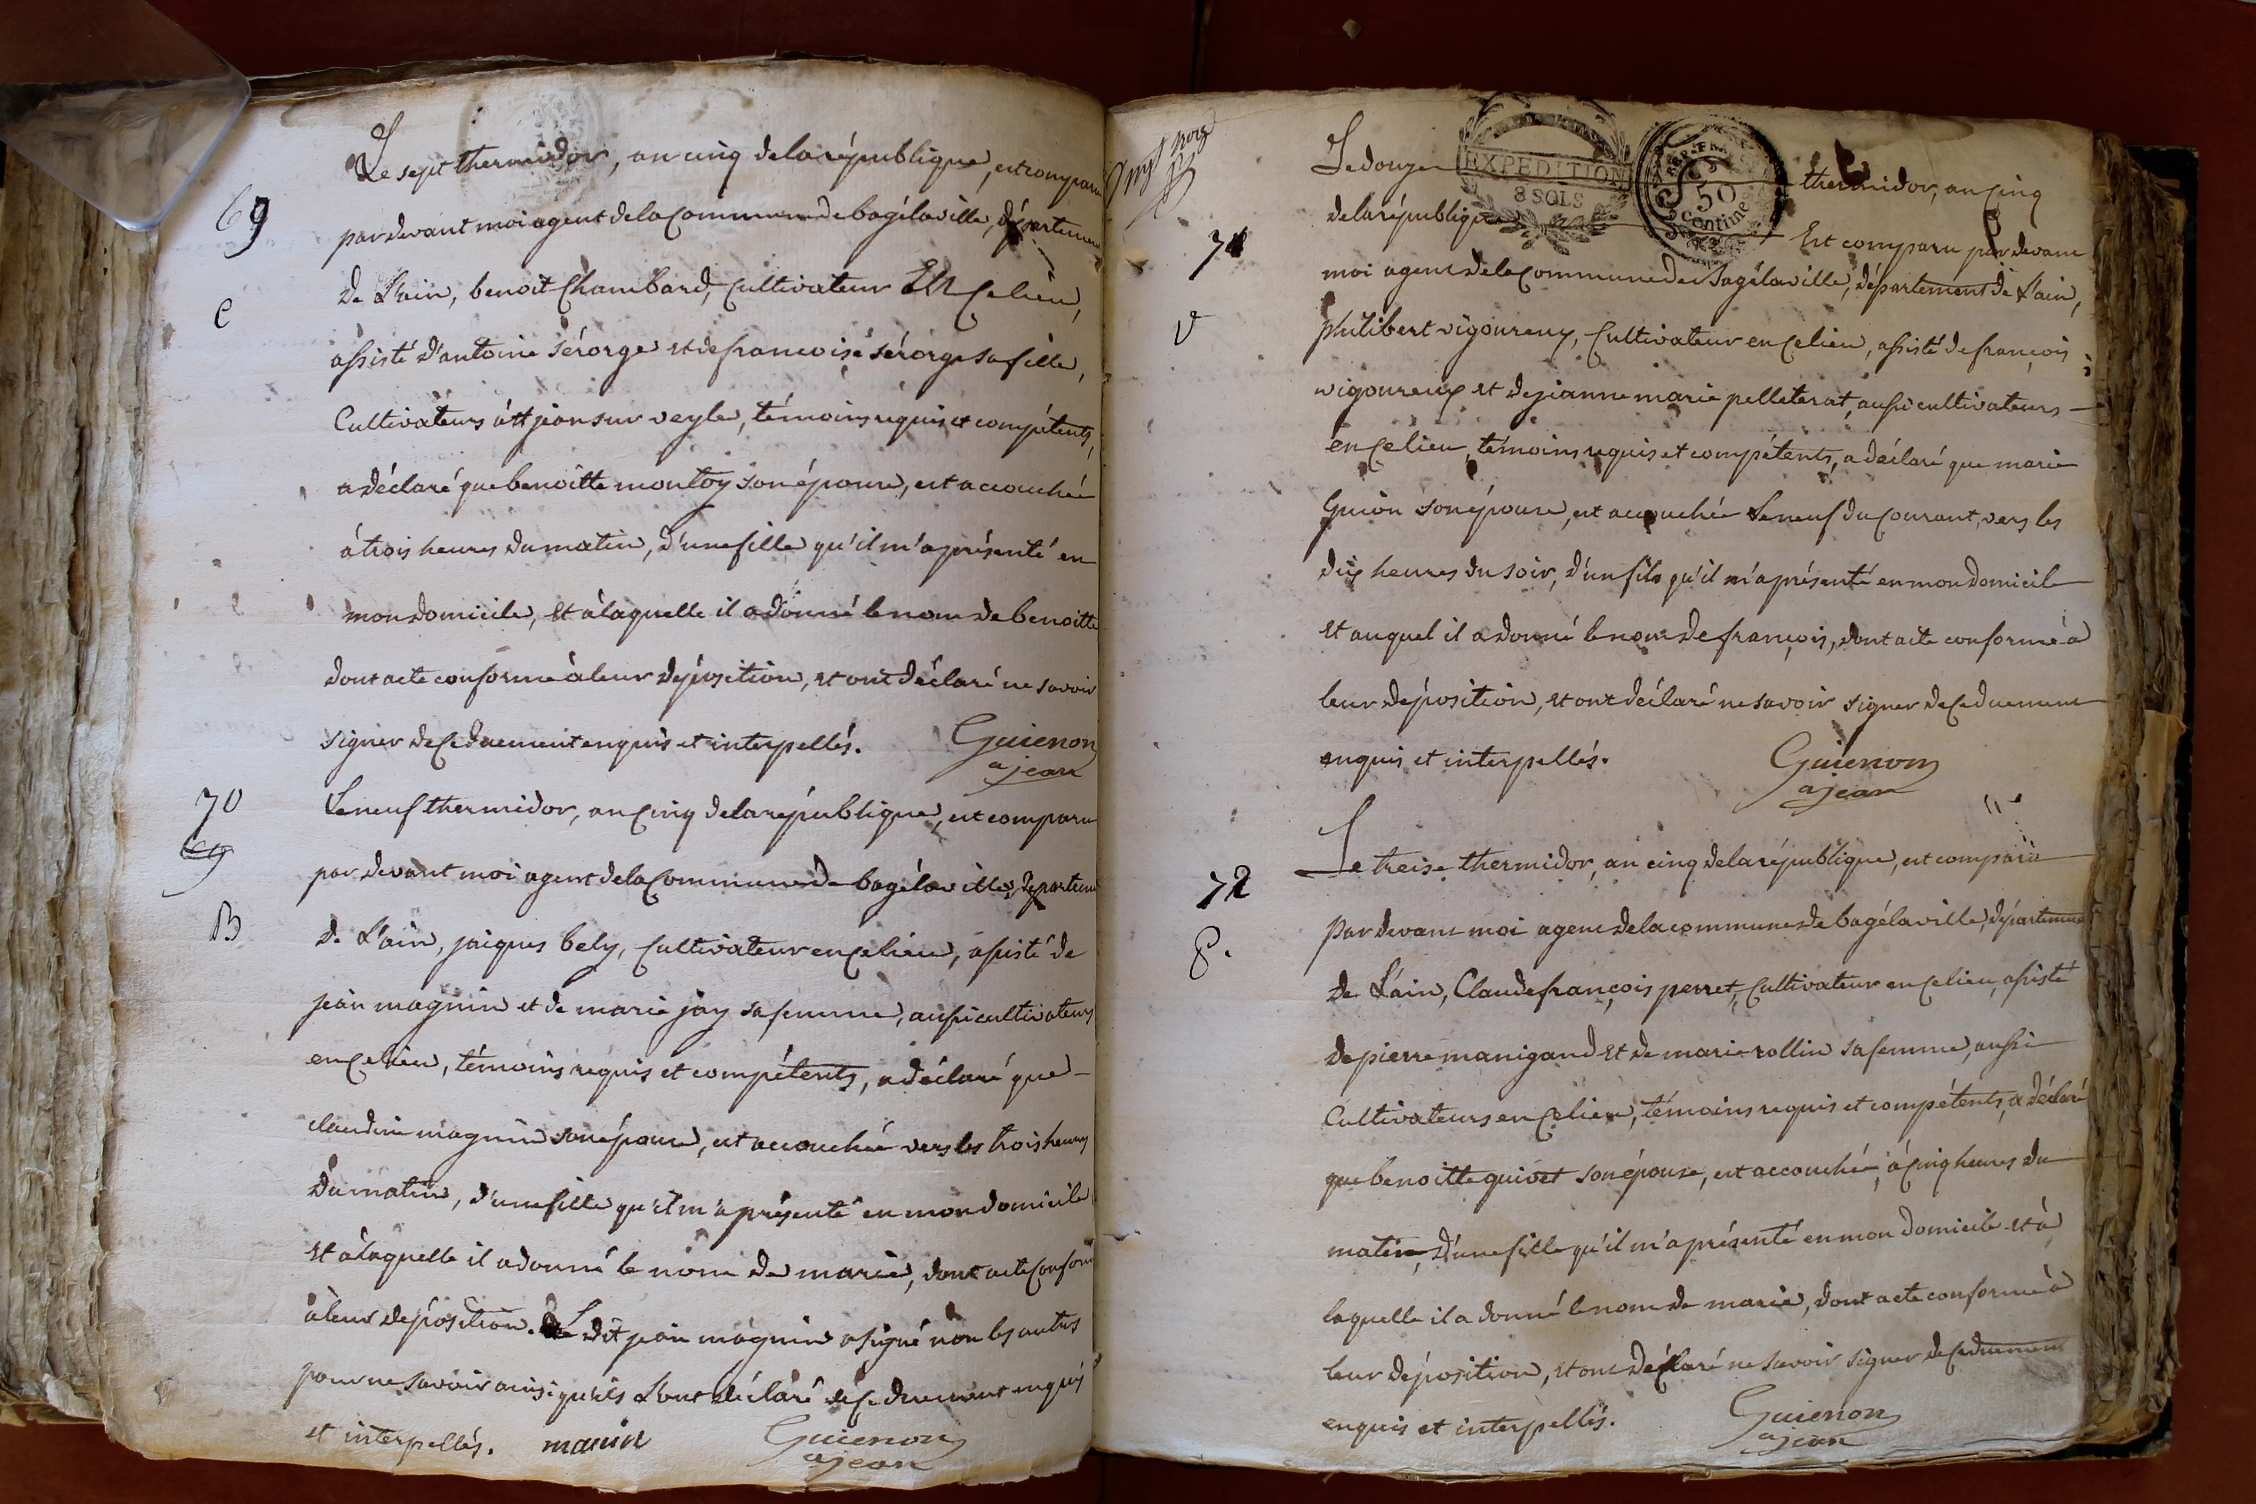 Le sept thermidor, an cinq de la république, est comparu
69
par devant moi agent de la Commune de bagélaville, département
de L'ain, benoit Chambard, Cultivateur En Ce lieu,
C
assisté d'antoine sérorge et de francoise sérorge sa fille,
Cultivateurs à st jean sur veyle, témoins requis et compétents,
a déclaré que benoitte montoy son épouse, est accouchée
à trois heures du matin, d'une fille qu'il m'a présenté en
mon domicile, et à laquelle il a donné le nom de benoitte
dont acte conforme à leur déposition, et ont déclaré ne savoir
signer de Ce duement enquis et interpellés. Guienon
a jean
70
Le neuf thermidor, an Cinq de la république, est comparu
69
par devant moi agent de la Commune de bagélaville, département
B
de L'ain, jaiques bely, Cultivateur en Ce lieu, assisté de
jean magnin et de marie jay sa femme, aussi cultivateurs
en Ce lieu, témoins requis et compétents, a déclaré que
claudine magnin son épouse, est accouchée vers les trois heures
du matin, d'une fille qu'il m'a présenté en mon domicile
et à laquelle il a donné le nom de marie, dont acte Conforme
à leur déposition. Le dit jean magnin a signé non les autres
pour ne savoir ainsi qu'ils L'ont déclaré de Ce duement enquis
et interpellés. manin Guienon
a jean
Le douze EXPEDITION 8 SOLS REP. FRA 50 Centime thermidor, an Cinq
de la république Est comparu par devant
71
moi agent de la Commune de Bagélaville, département de L'ain,
V
philibert vigoureux, Cultivateur en Ce lieu, assisté de françois
vigoureux et de jeanne marie pelleterat, aussi cultivateurs
en Ce lieu, témoins requis et compétents, a déclaré que marie
Guion son épouse, est accouchée Le neuf du Courant, vers les
dix heures du soir, d'un fils qu'il m'a présenté en mon domicile
et auquel il a donné le nom de françois, dont acte conforme à
leur déposition, et ont déclaré ne savoir signer de Ce duement
enquis et interpellés. Guienon
a jean
Le treise thermidor, an cinq de la république, est comparu
72
par devant moi agent de la commune de bagélaville, département
P.
de L'ain, Claude françois perret, Cultivateur en Ce lieu, assisté
de pierre manigand et de marie rollin sa femme, aussi
Cultivateurs en Ce lieu, témoins requis et compétents, a déclaré
que benoitte guivet son épouse, est accouchée, à Cinq heures du
matin, d'une fille qu'il m'a présenté en mon domicile et à
laquelle il a donné le nom de marie, dont acte conforme à
leur déposition, et ont déclaré ne savoir signer de Ce duement
enquis et interpellés. Guienon
a jean